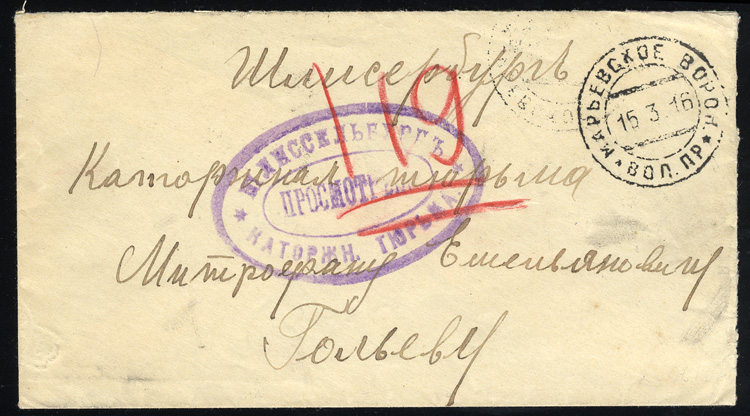 Шлисербургъ
Каторжная тюрьма
Митрофану Емельяновичу
Гольеву
119
ШЛИССЕЛЬБУРГЪ
ПРОСМОТРЕНО
★ КАТОРЖН. ТЮРЬМА
МАРЬЕВСКОЕ ВОРОН.
15 3 16
★ ВОЛ. ПР ★